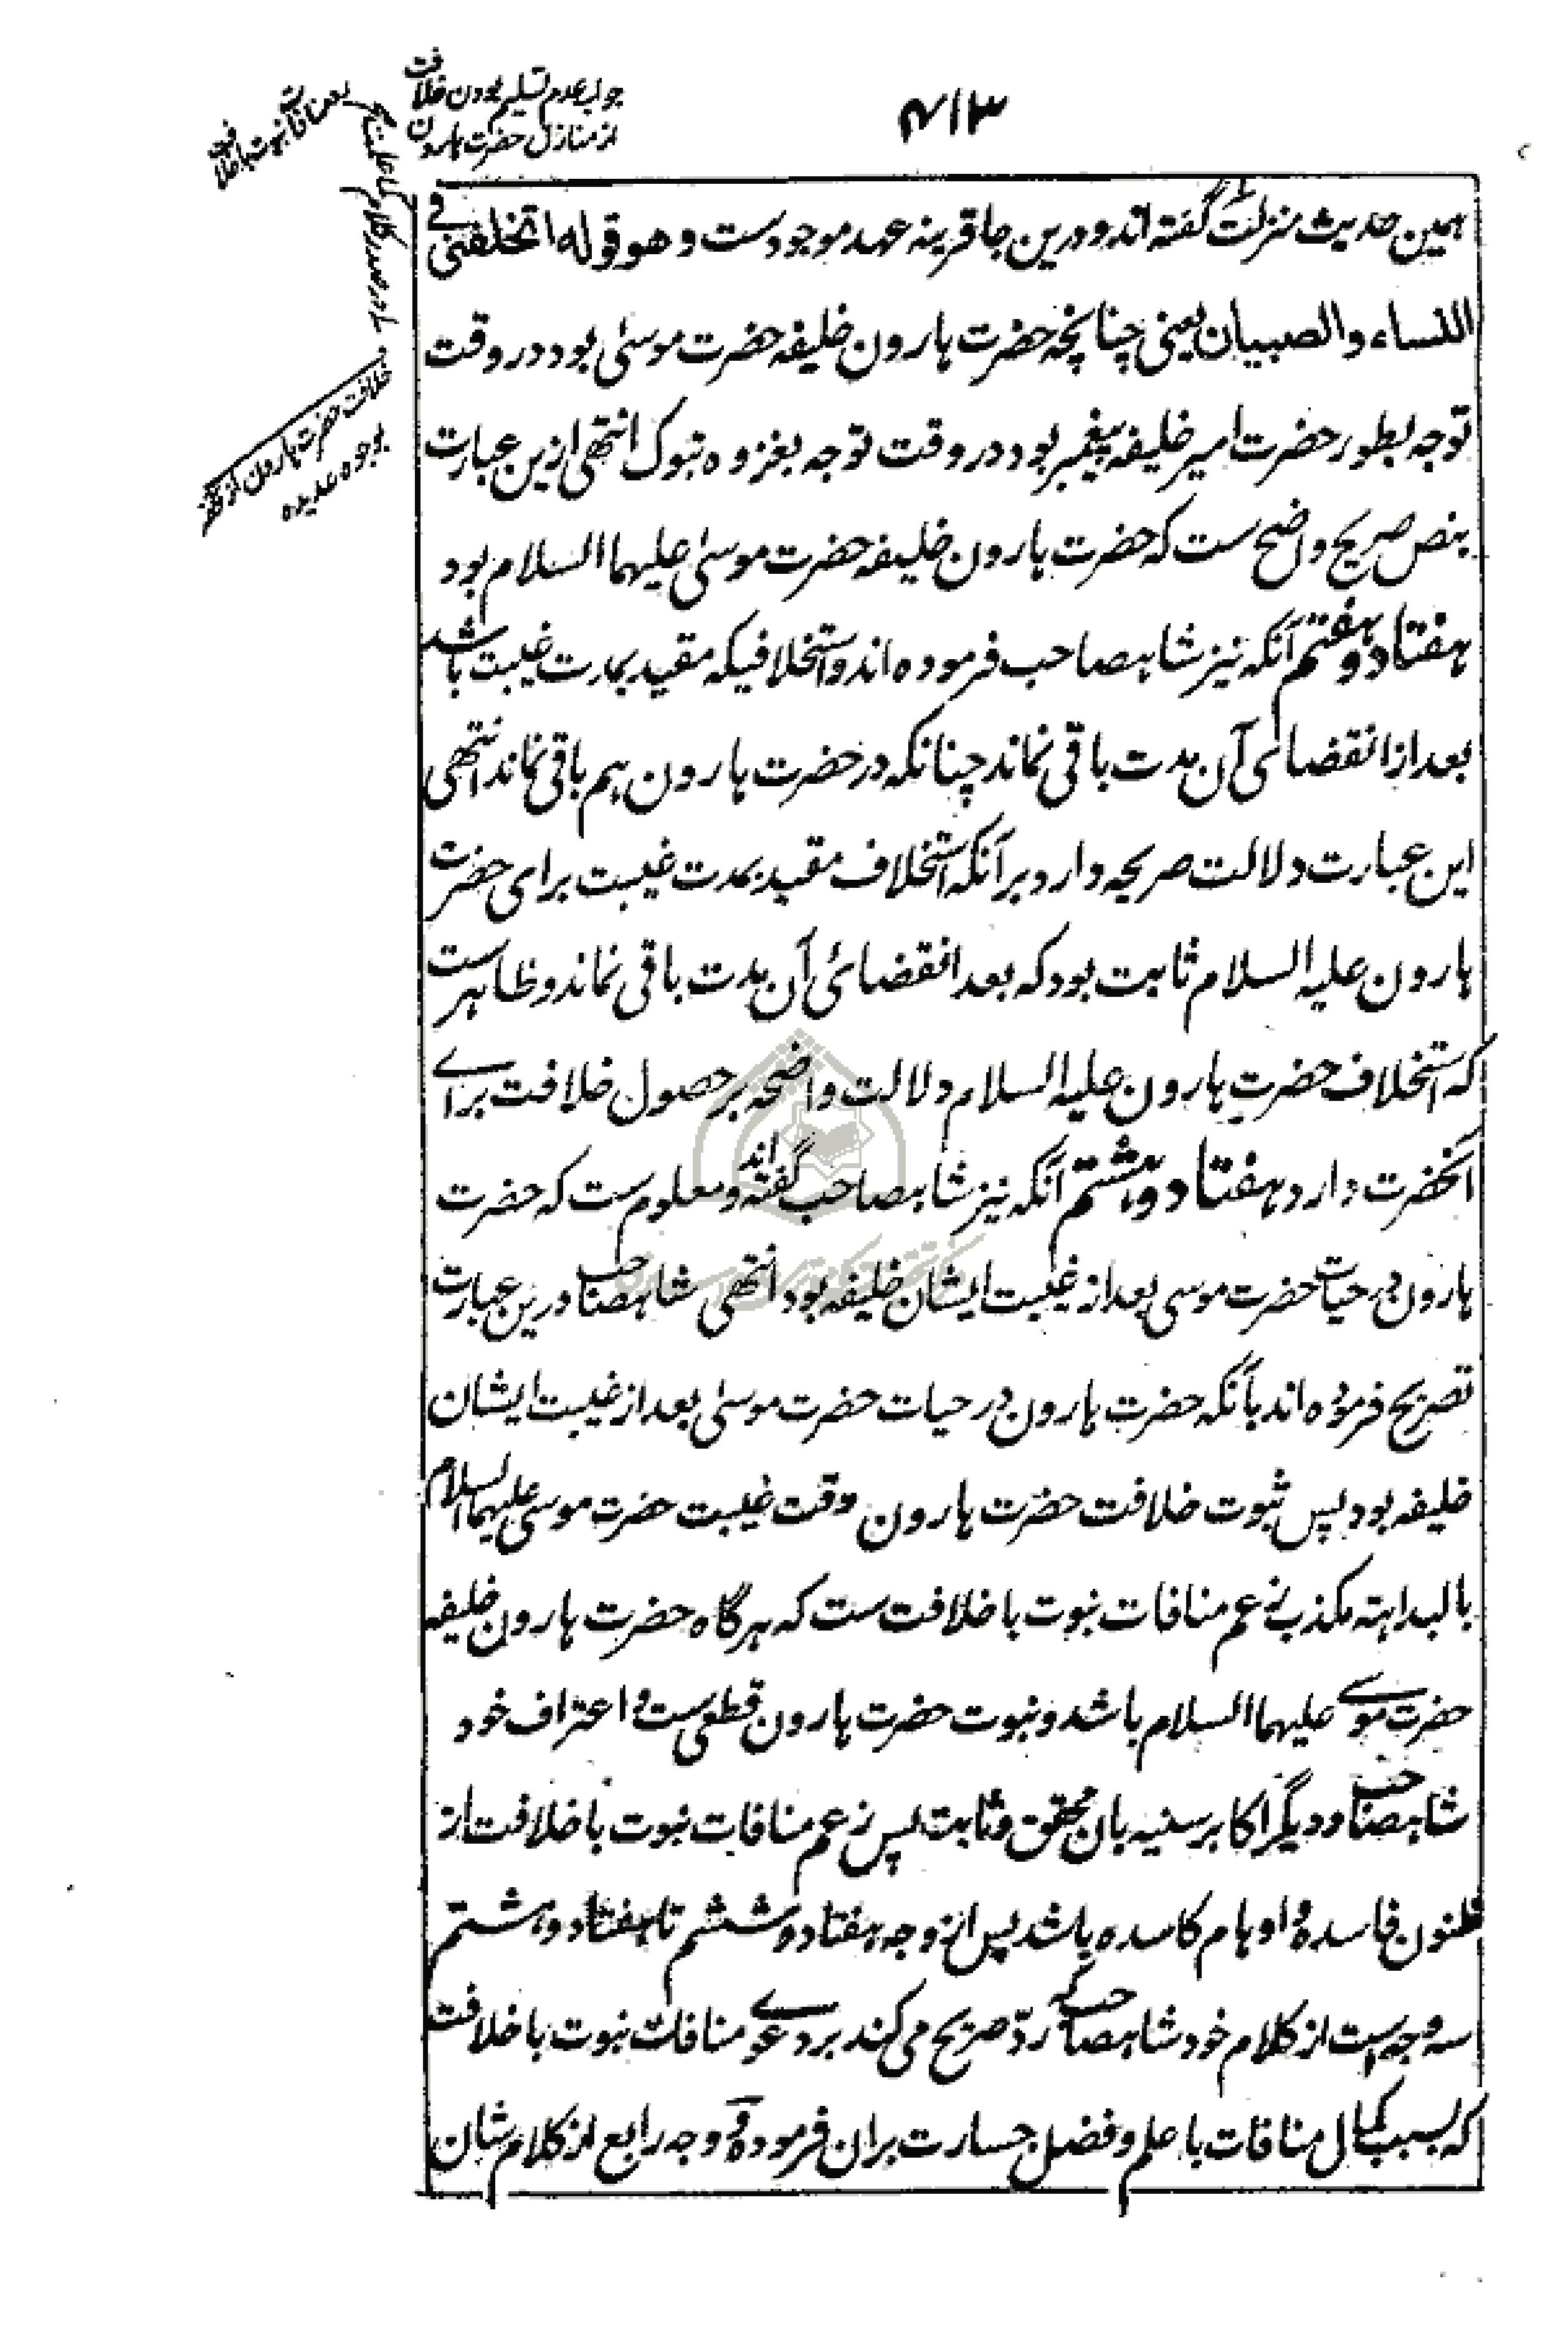 ۸۱۳
جواب عدم تسلیم بودن خلافت
از منازل حضرت هارون
بمنافات نبوت با خلافت
خلافت حضرت هارون از
بوجوه عدیده
همین حدیث منزلت گفته اند و درین جا قرینه عهد موجودست و هو قوله اتخلفنی فے
النساء والصبیان یعنی چنانچه حضرت هارون خلیفه حضرت موسیٰ بود در وقت
توجه بطور حضرت امیر خلیفه پیغمبر بود در وقت توجه بغزوه تبوک انتهی ازین عبارت
بنص صریح واضح ست که حضرت هارون خلیفه حضرت موسیٰ علیهما السلام بود
هفتاد و هفتم آنکه نیز شاهصاحب فرموده اند و استخلافیکه مقید بمدت غیبت باشد
بعد از انقضای آن مدت باقی نماند چنانکه در حضرت هارون هم باقی نماند انتهی
این عبارت دلالت صریحه دارد بر آنکه استخلاف مقید بمدت غیبت برای حضرت
هارون علیه السلام ثابت بود که بعد انقضائی آن مدت باقی نماند و ظاهرست
که استخلاف حضرت هارون علیه السلام دلالت واضحه بر حصول خلافت براے
آنحضرت دارد هفتاد و هشتم آنکه نیز شاهصاحب گفته اند و معلوم ست که حضرت
هارون در حیات حضرت موسی بعد از غیبت ایشان خلیفه بود انتهی شاهصاحب درین عبارت
تصریح فرموده اند بآنکه حضرت هارون در حیات حضرت موسیٰ بعد از غیبت ایشان
خلیفه بود پس ثبوت خلافت حضرت هارون وقت غیبت حضرت موسی علیهما السلام
بالبداهته مکذب زعم منافات نبوت با خلافت ست که هرگاه حضرت هارون خلیفه
حضرت موسے علیهما السلام باشد و نبوت حضرت هارون قطعی ست و اعتراف خود
شاهصاحب و دیگر اکابر سنیه بان محقق و ثابت پس زعم منافات نبوت با خلافت از
ظنون فاسده و اوهام کاسده باشد پس از وجه هفتاد و ششم تا هفتاد و هشتم
سه وجه است از کلام خود شاهصاحب که ردّ صریح می کند بر دعوے منافات نبوت با خلافت
که بسبب کمال منافات با علم و فضل جسارت بران فرموده و وجه رابع از کلام شان